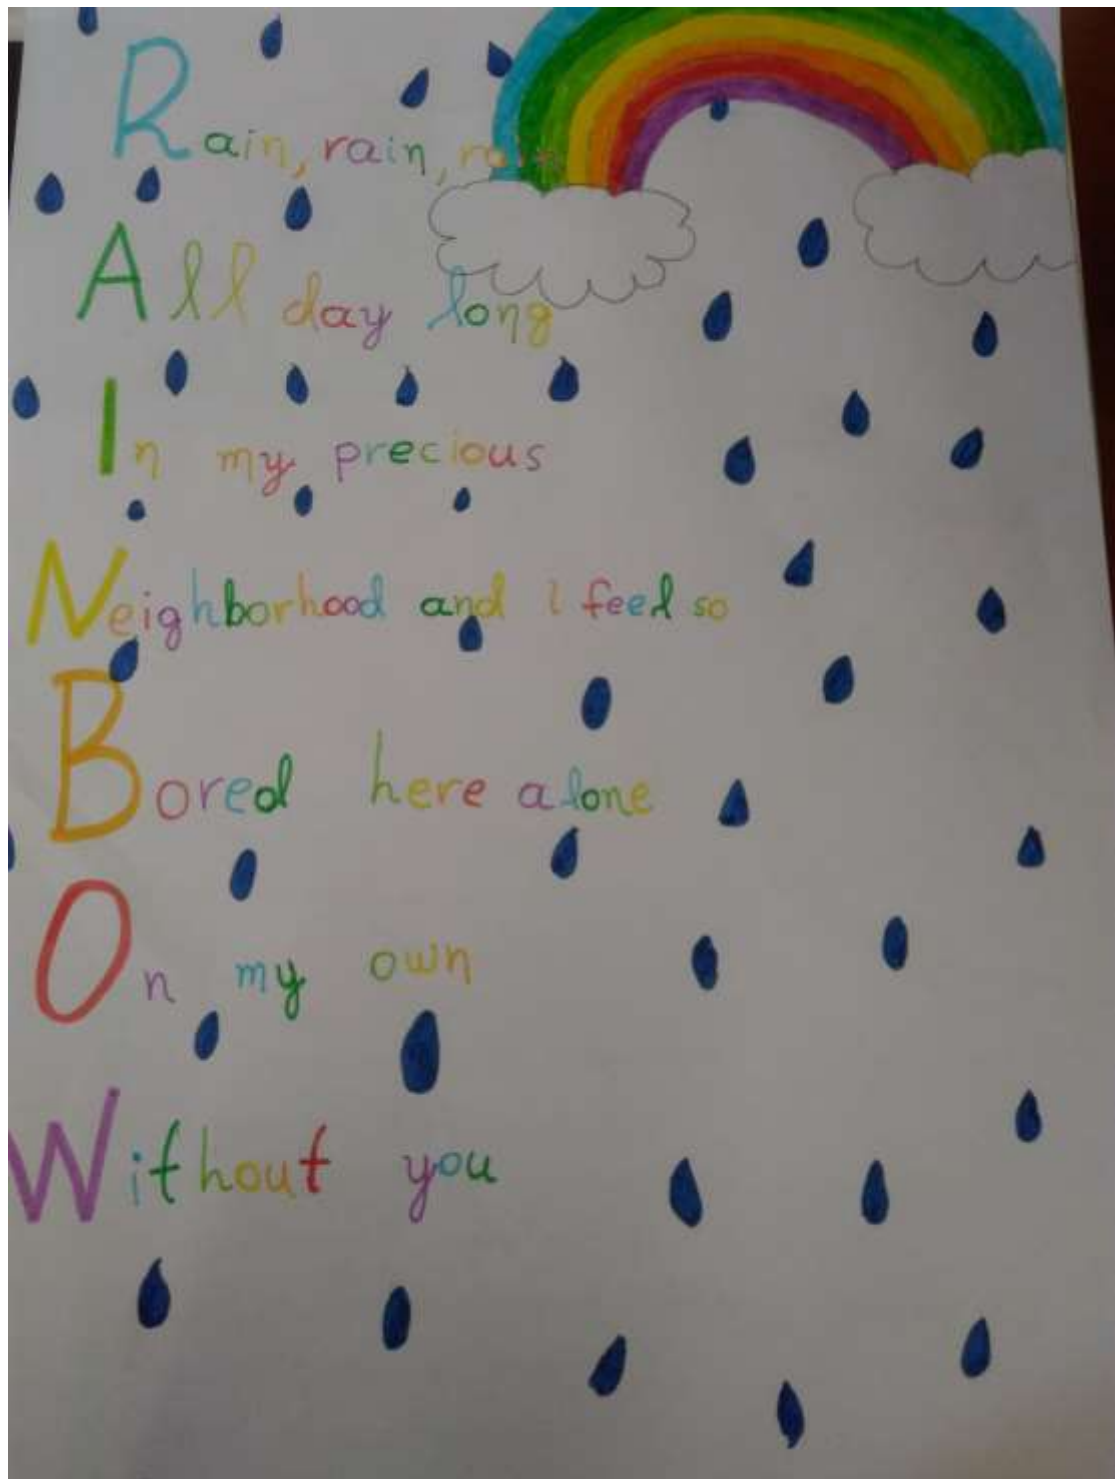 Rain, rain, rain
All day long
In my precious
Neighborhood and i feel so
Bored here alone
On my own
Without you